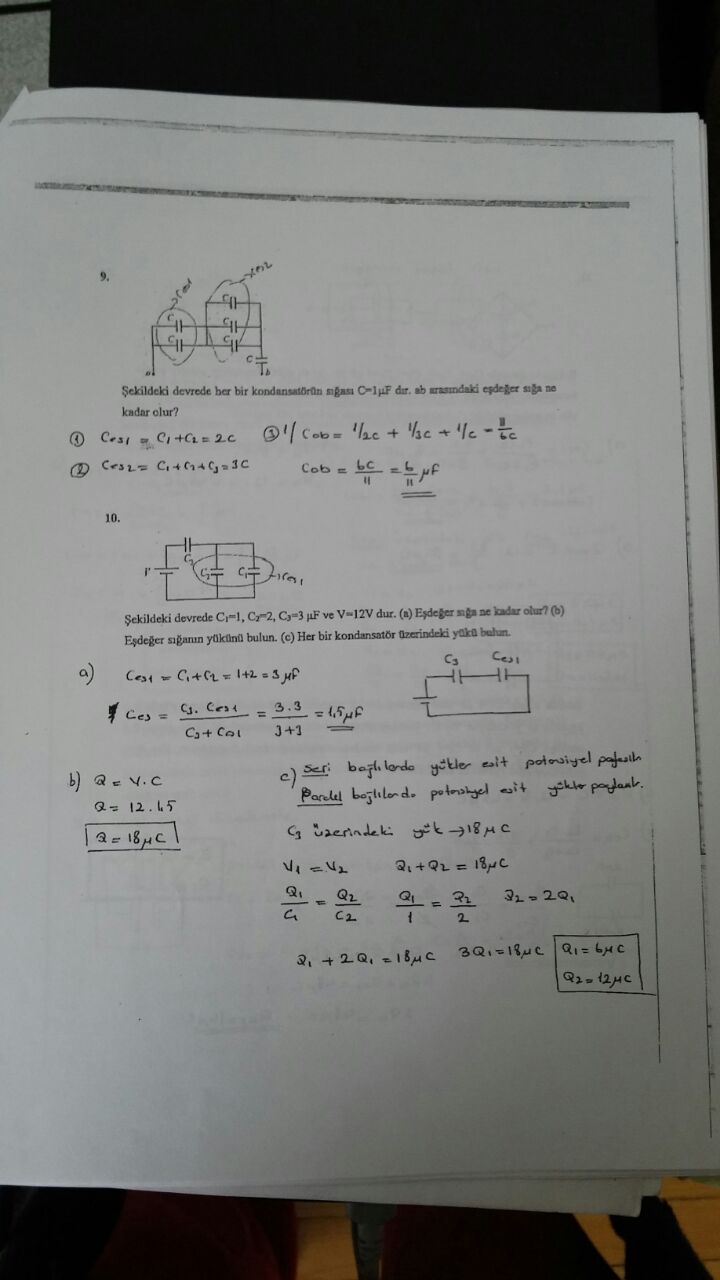 9.
Ceş1
Ceş2
C
C
C
C
C
C
a
b
Şekildeki devrede her bir kondansatörün sığası C=1μF dır. ab arasındaki eşdeğer sığa ne
kadar olur?
① Ceş1 = C1+C2 = 2C
② Ceş2 = C1+C2+C3=3C
③ 1/Cab = 1/2C + 1/3C + 1/C = 11/6C
Cab = 6C/11 = 6/11 μF
10.
V
C2
C1
Ceş1
Şekildeki devrede C1=1, C2=2, C3=3 μF ve V=12V dur. (a) Eşdeğer sığa ne kadar olur? (b)
Eşdeğer sığanın yükünü bulun. (c) Her bir kondansatör üzerindeki yükü bulun.
C3 Ceş1
a) Ceş1 = C1+C2 = 1+2 = 3 μF
Ceş = C3. Ceş1 / C3 + Ceş1 = 3.3 / 3+3 = 1,5 μF
b) Q = V.C
Q = 12.1,5
Q = 18 μC
c) Seri bağlılarda yükler eşit potansiyel paylaşılır
Paralel bağlılarda potansiyel eşit yükler paylaşılır.
C3 üzerindeki yük → 18 μC
V1 = V2 Q1+Q2 = 18 μC
Q1/C1 = Q2/C2 Q1/1 = Q2/2 Q2 = 2Q1
Q1 + 2Q1 = 18 μC 3Q1 = 18 μC Q1 = 6 μC
Q2 = 12 μC